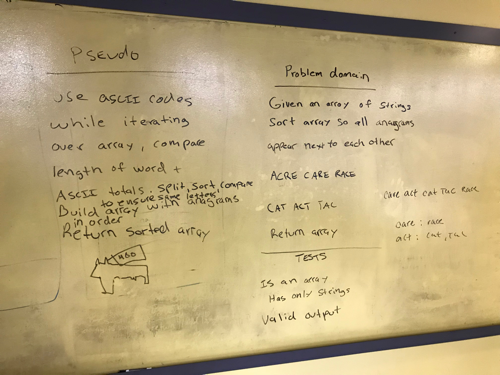 Pseudo
use ASCII codes
while iterating
over array, compare
length of word +
ASCII totals. Split, Sort, compare
to ensure same letters
Build array with anagrams
in order
Return sorted array
Problem domain
Given an array of strings
Sort array so all anagrams
appear next to each other
ACRE CARE RACE
CAT ACT TAC
Return array
TESTS
Is an array
Has only strings
Valid output
care act cat tac race
care : race
act : cat, tac